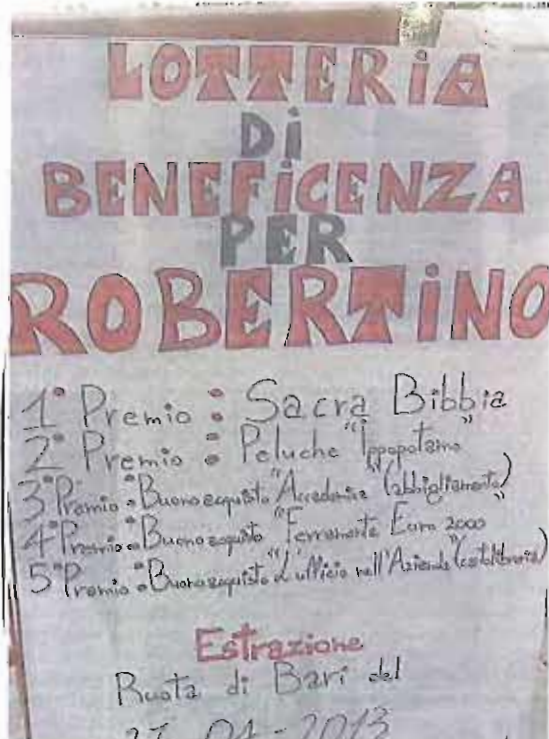 LOTTERiA
Di
BENEFiCENZA
PER
ROBERTiNO
1° Premio : Sacra Bibbia
2° Premio : Peluche "Ippopotamo"
3° Premio : Buono acquisto "Accademia" (abbigliamento)
4° Premio : Buono acquisto "Ferramenta Euro 2000"
5° Premio : Buono acquisto "L'ufficio nell'Azienda" (cartolibreria)
Estrazione
Ruota di Bari del
04-2013